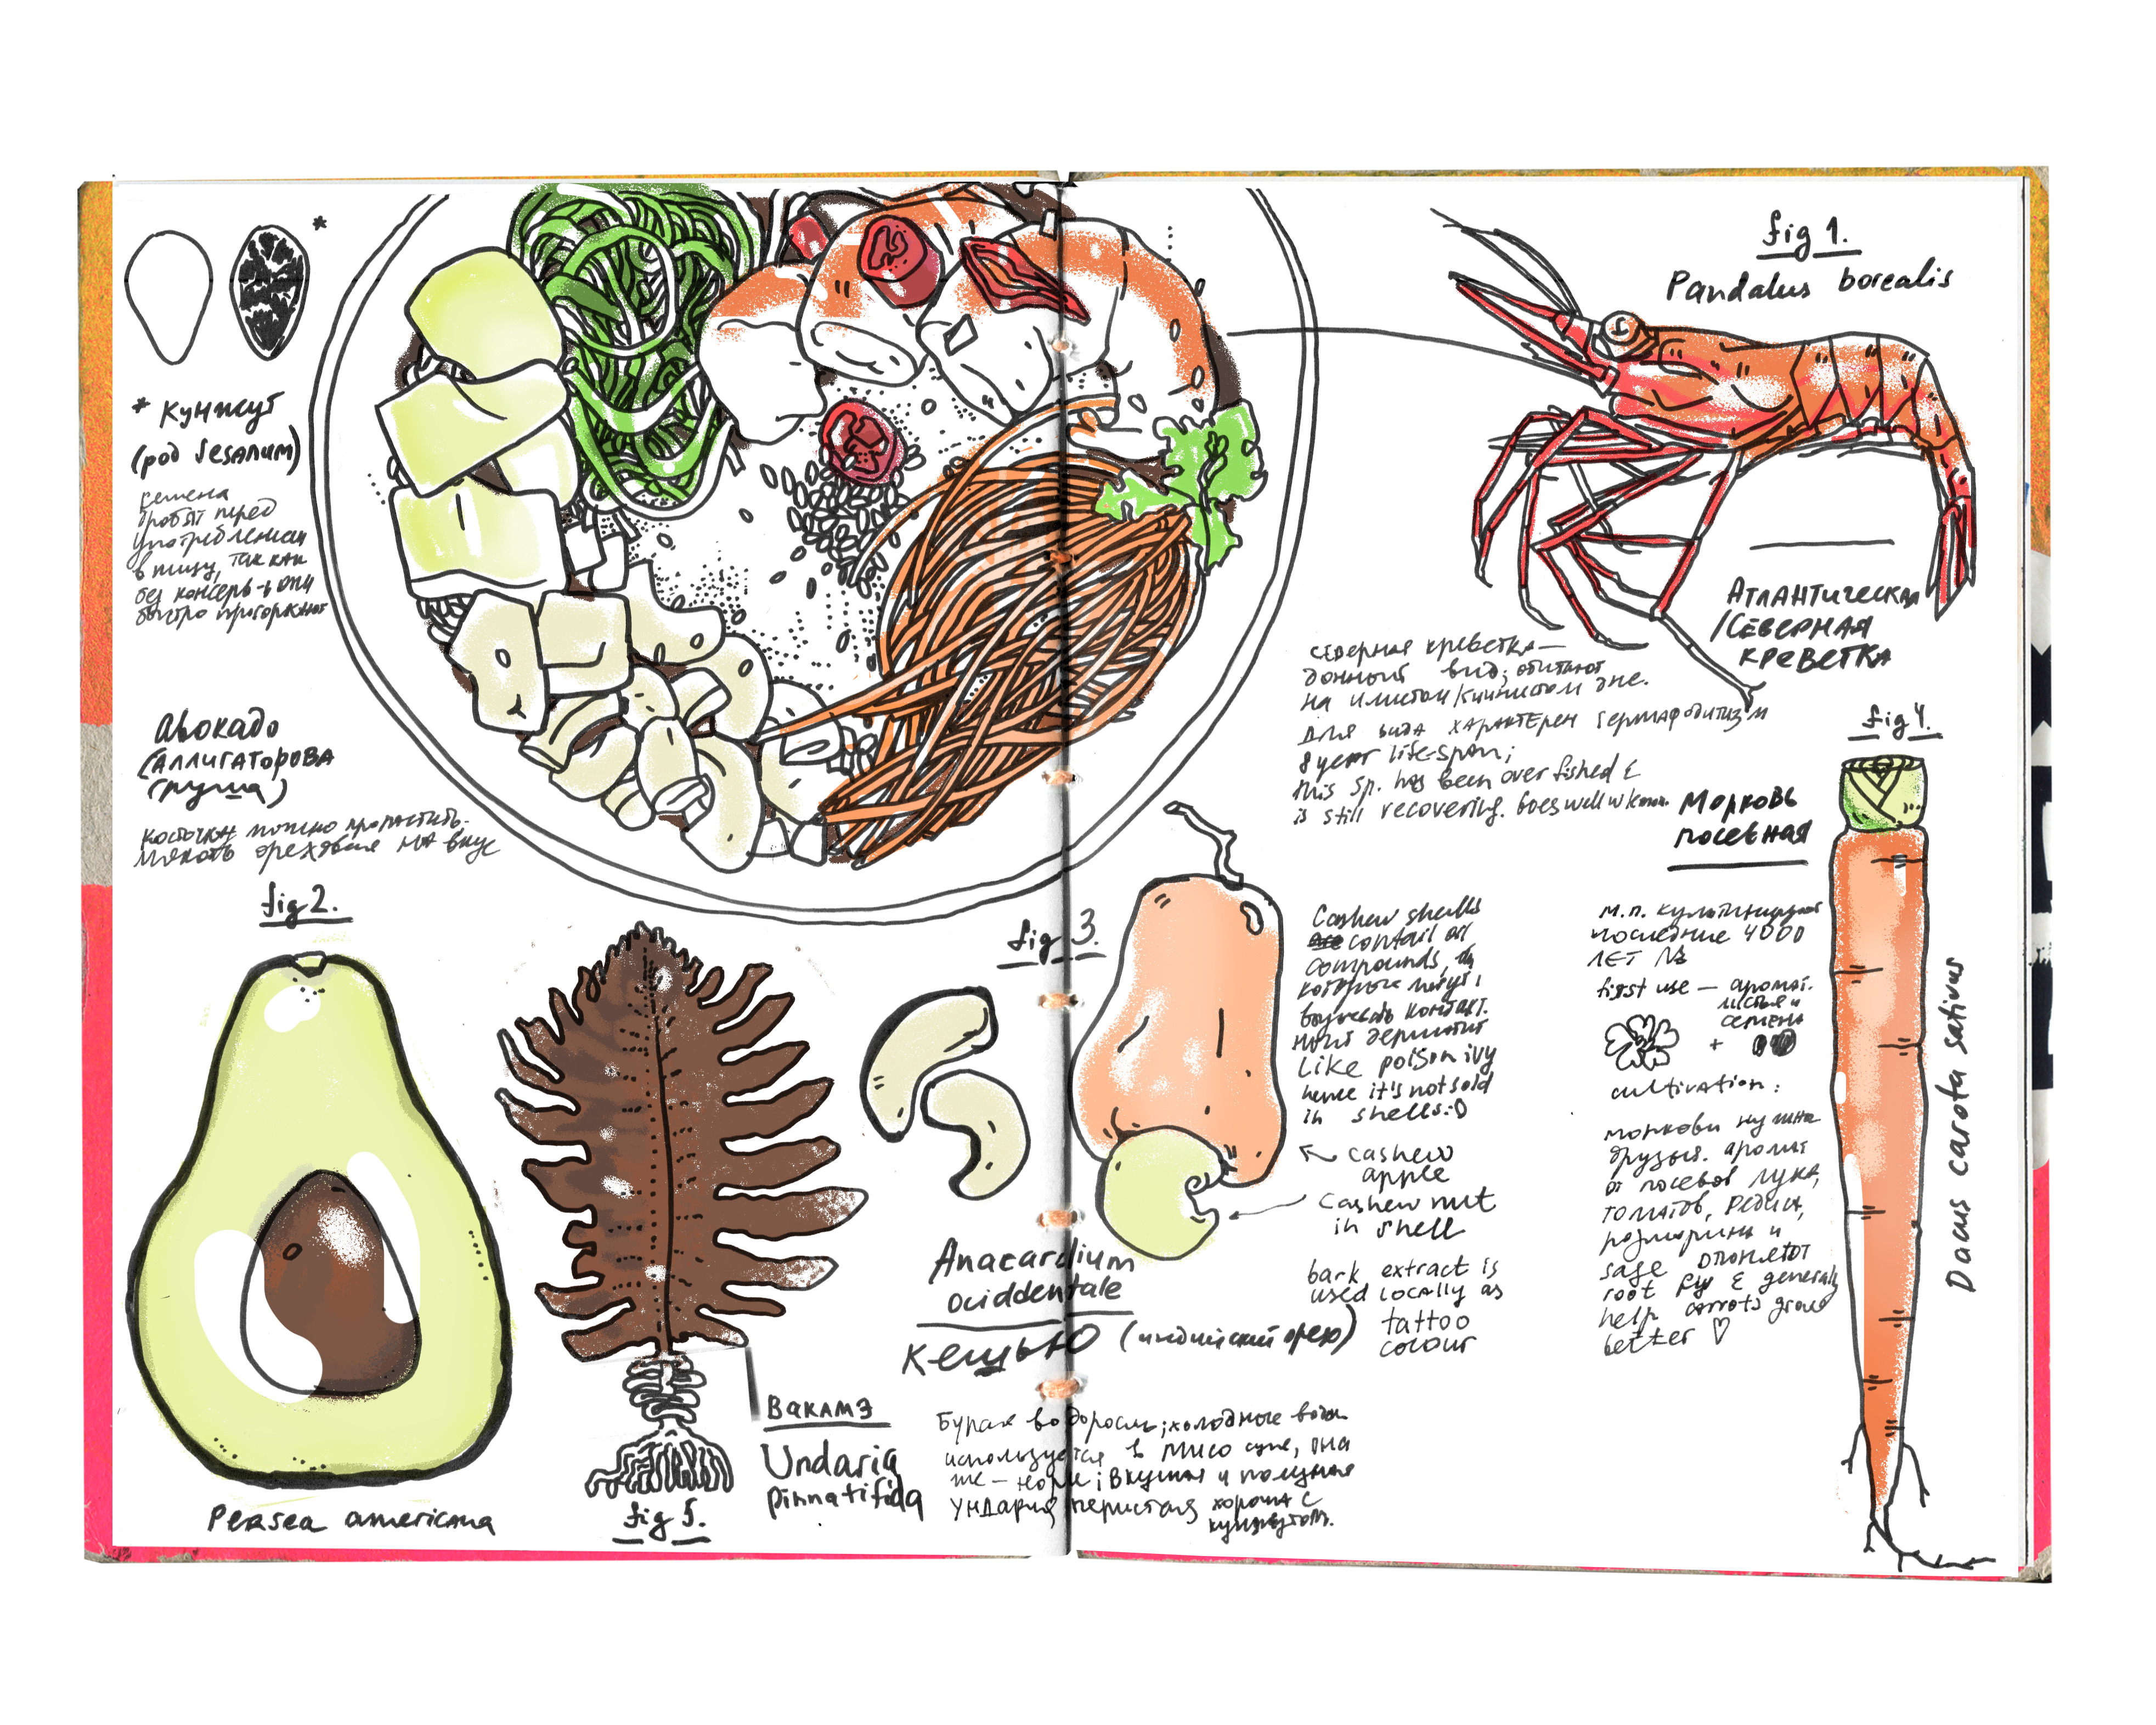 *
* Кунжут
(род Sesamum)
семена
дробят перед
употреблением
в пищу, так как
без консерв-в они
быстро прогоркают
Авокадо
(Аллигаторова
груша)
косточки можно прорастить.
мякоть ореховая на вкус
fig 2.
Persea americana
fig 1.
Pandalus borealis
Атлантическая
/Северная
креветка
северная креветка —
донный вид; обитают
на илистом/ дне.
для вида характерен гермафродитизм
8 year life-span;
this sp. has been over fished &
is still recovering. Goes well w
fig 3.
Anacardium
ociddentale
Кешью (индийский орех)
Cashew shells
contail oil
compounds,
которые могут
вызывать контакт.
ный дерматит
like poison ivy
hence it's not sold
in shells:D
cashew
apple
Cashew nut
in shell
bark extract is
used locally as
tattoo
colour
fig 4.
Морковь
посевная
Dacus carota sativus
м.п. культивируют
последние 4000
лет
first use — аромат.
листья и
семена
+
cultivation:
моркови нужны
друзья. аромат
от посевов лука,
томатов, редиса,
розмарина и
sage отгоняют
root fly & generally
help carrots grow
better ♡
Вакамэ
Undaria
pinnatifida
fig 5.
Бурая водоросль; холодные воды
используется в мисо супе, она
же — ; вкусная и полезная
ундария перистая хороша с
кунжутом.